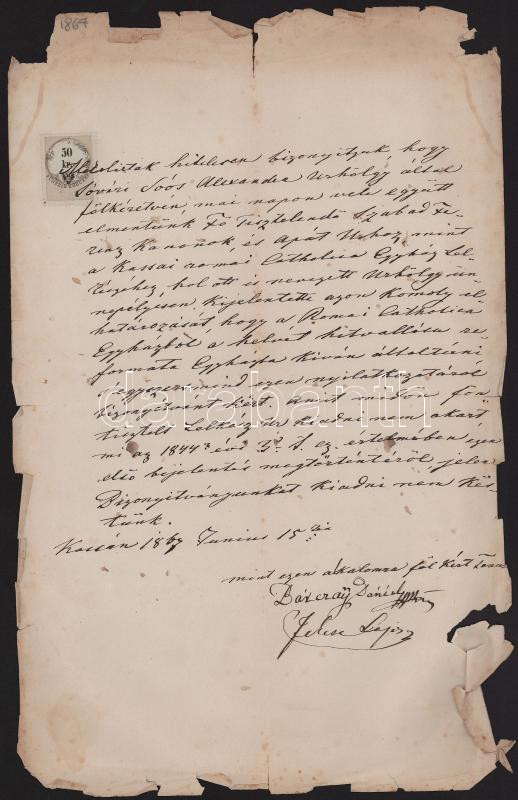 1867
50
kr.
Alolirtak hitelesen bizonyitjuk, hogy
Sóvári Soós Alexandra Urhölgy által
fölkéretvén mai napon vele együtt
elmentünk Fő Tisztelendő Szabad Fe-
rencz Kanonok, és Apát Urhoz, mint
a Kassai romai Catholica Egyház Lel-
készéhez hol ott is nevezett Urhölgy ün-
nepélyesen kijelentette azon Komoly el-
határozását, hogy a Romai Catholica
Egyházból a helvét hitvallásu re-
formata Egyházba kiván általtérni
egyszersmind ezen nyilatkozatáról
bizonyitványt kért, mit midőn fön
tisztelt Lelkész ur kiadni nem akart
mi az 1844 évi 3 t. cz. értelmében ezen
első bejelentés megtörténtéről jelen
Bizonyitványunkat kiadni nem kés-
tünk.
Kassán 1867 Junius 15
mint ezen alkalomra föl kért Tanu
Dániel
Lajos
darabanth